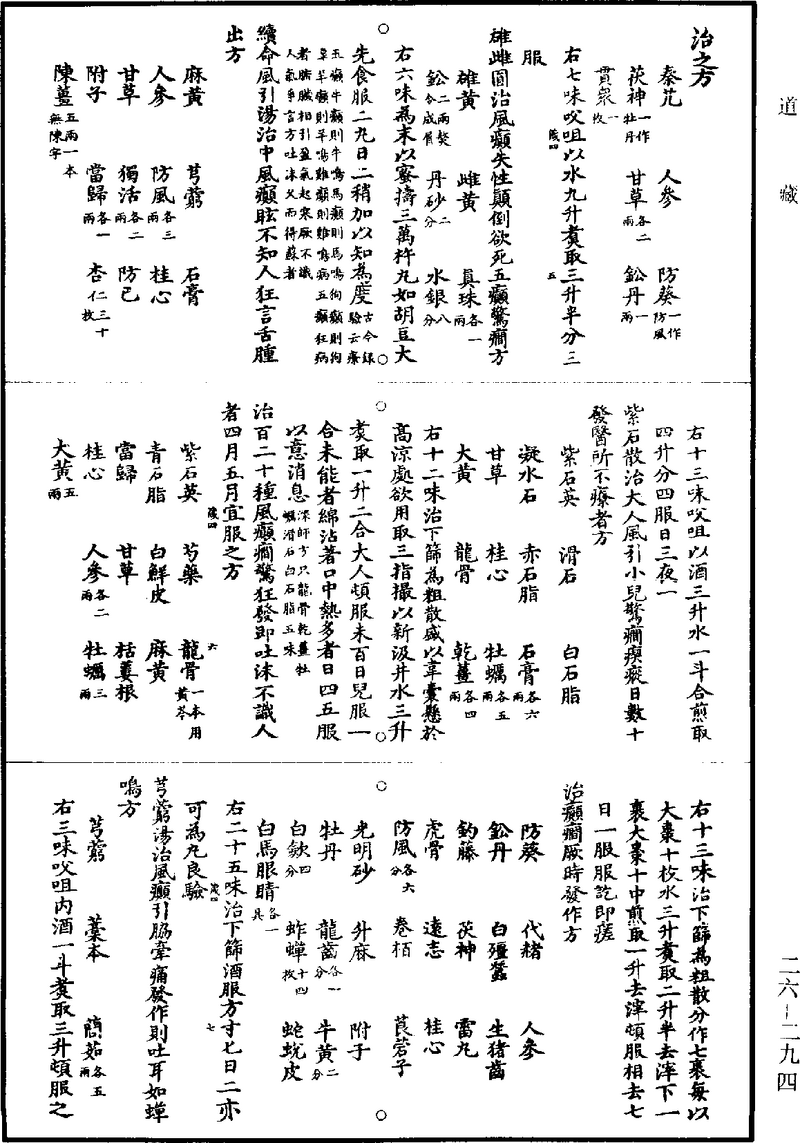 道藏
治之方
秦艽 人參 防葵一作防風
茯神一作牡丹 甘草各二兩 鈆丹一兩
貫衆一枚
右七味㕮咀以水九升煑取三升半分三
服
雄雌圓治風癲失性顛倒欲死五癲驚癎方
雄黄 雌黄 真珠各一兩
鈆二兩熬令成屑 丹砂二分 水銀八分
右六味為末以蜜擣三萬杵丸如胡豆大
先食服二丸日二稍加以知為度古今録驗云療五癲牛癲則牛鳴馬癲則馬鳴狗癲則狗吠羊癲則羊鳴雞癲則雞鳴病五癲狂病者腑臟相引盈氣起寒厥不識人氣爭言方吐沫久而得蘇者
續命風引湯治中風癲眩不知人狂言舌腫
出方
麻黄 芎藭 石膏
人參 防風各三兩 桂心
甘草 獨活各二兩 防己
附子 當歸各一兩 杏仁三十枚
陳薑五兩一本無陳字
右十三味㕮咀以酒三升水一斗合煎取
四升分四服日三夜一
紫石散治大人風引小兒驚癎瘈瘲日數十
發醫所不療者方
紫石英 滑石 白石脂
凝水石 赤石脂 石膏各六兩
甘草 桂心 牡蠣各五兩
大黄 龍骨 乾薑各四兩
右十二味治下篩為粗散盛以韋囊懸於
高涼處欲用取三指撮以新汲井水三升
煑取一升二合大人頓服未百日兒服一
合未能者綿沾著口中熱多者日四五服
以意消息深師方只龍骨乾薑牡蠣滑石白石脂五味
治百二十種風癲癎驚狂發卽吐沫不識人
者四月五月宜服之方
紫石英 芍藥 龍骨一本用黄芩
青石脂 白鮮皮 麻黄
當歸 甘草 栝蔞根
桂心 人參各二兩 牡蠣三兩
大黄五兩
右十三味治下篩為粗散分作七裹每以
大棗十枚水三升煑取二升半去滓下一
裹大棗十中煎取一升去滓頓服相去七
日一服服訖卽瘥
治癲癎厥時發作方
防葵 代赭 人參
鈆丹 白殭蠶 生猪齒
釣藤 茯神 雷丸
虎骨 遠志 桂心
防風各六分 卷栢 莨菪子
光明砂 升麻 附子
牡丹 龍齒各一分 牛黄二分
白斂四分 蚱蟬十四枚 蛇蛻皮
白馬眼睛各一具
右二十五味治下篩酒服方寸匕日二亦
可為丸良驗
芎藭湯治風癲引脇牽痛發作則吐耳如蟬
鳴方
芎藭 藁本 䕡茹各五兩
右三味㕮咀内酒一斗煑取三升頓服之
二六—二九四